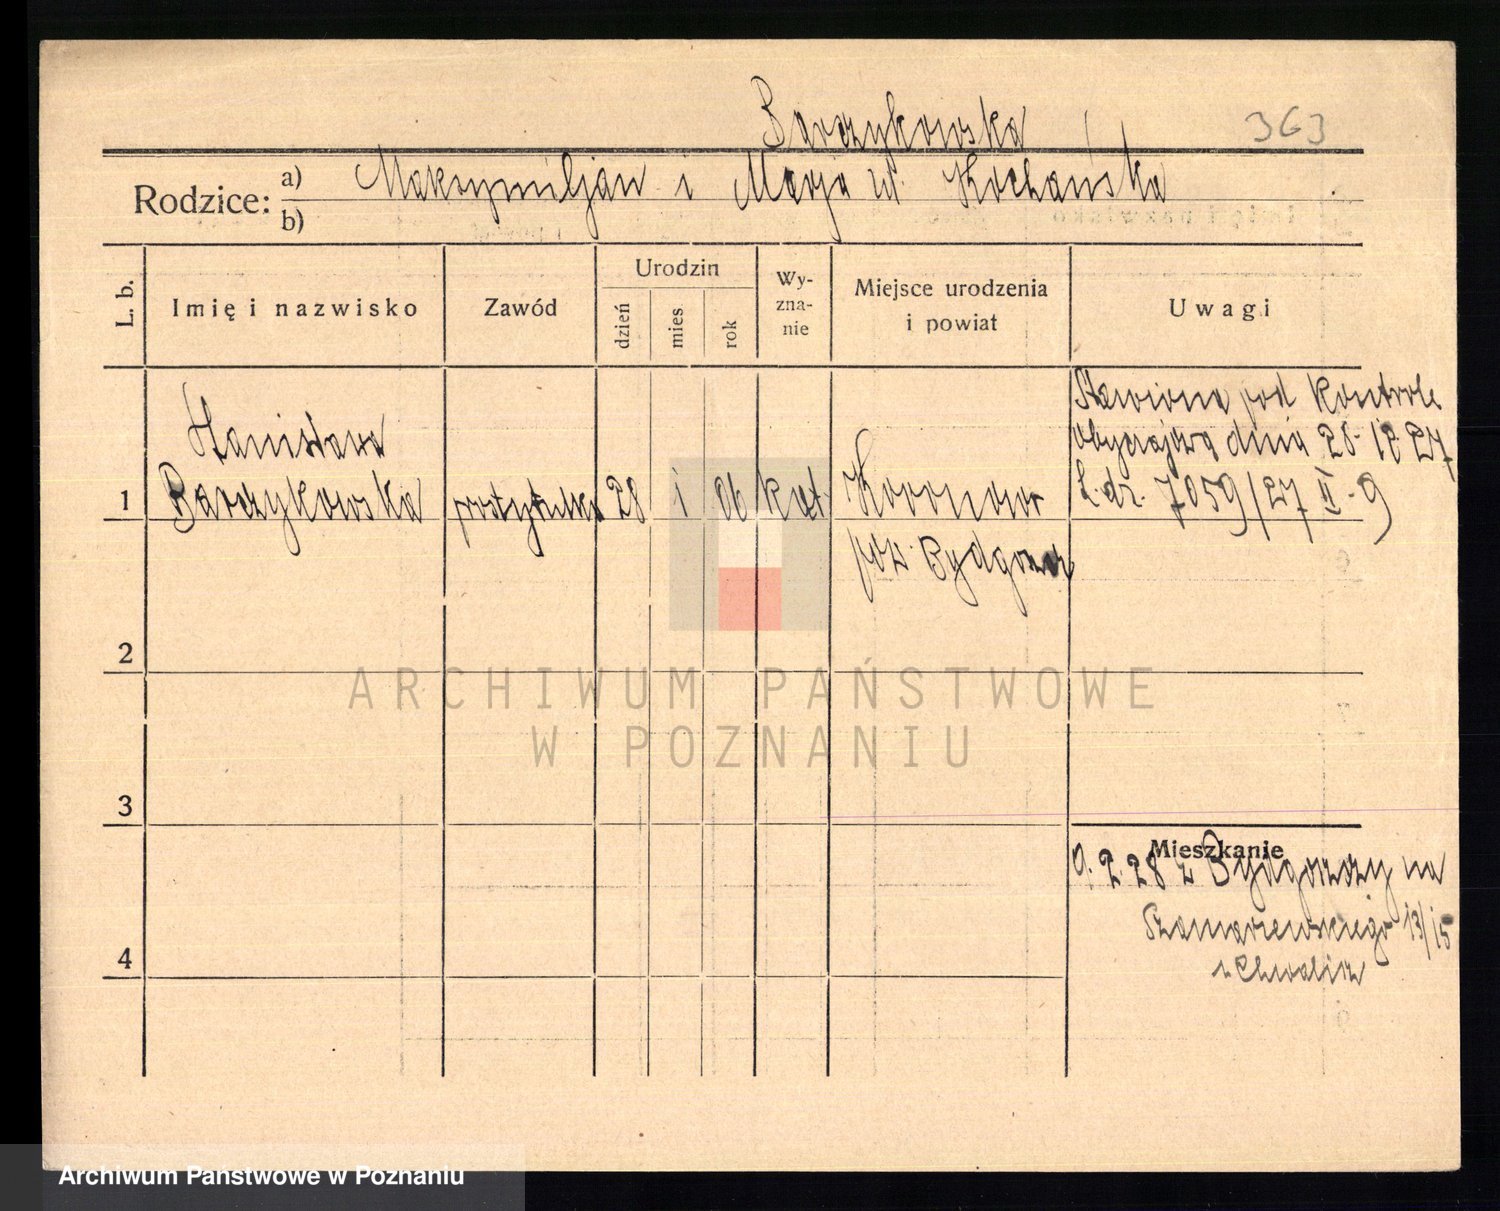 Barczykowska
363
Rodzice: a) Maksymiljan i Marja u. Kochańska
b)
L. b.
Imię i nazwisko
Zawód
Urodzin
dzień
mies
rok
Wy-
zna-
nie
Miejsce urodzenia
i powiat
Uwagi
Stanisława
1 Barczykowska prostytutka 28 i 06 kat. Koronowo
pow. Bydgoszcz
Stawiona pod Kontrole
obyczajową dnia 28. 12 27
L. dz. 7059/27 II - 9
2
3
4
Mieszkanie
9. 2. 28 z Bydgoszczy na
Szamarzewskiego 13/15
ARCHIWUM PAŃSTWOWE
W POZNANIU
Archiwum Państwowe w Poznaniu